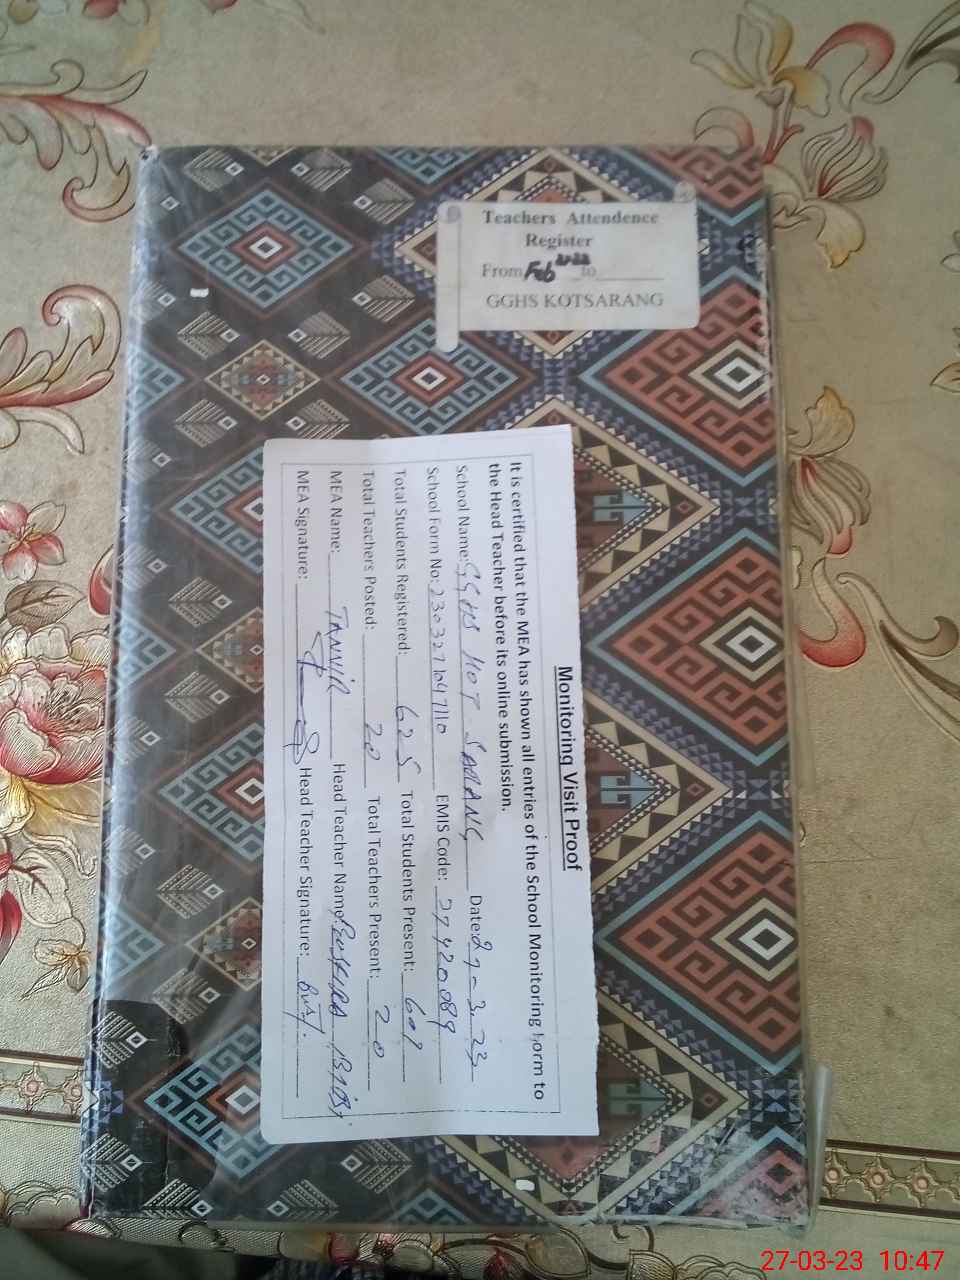 Teachers Attendence
Register
From Feb 2022 to
GGHS KOTSARANG
Monitoring Visit Proof
It is certified that the MEA has shown all entries of the School Monitoring Form to
the Head Teacher before its online submission.
School Name: GGHS KOT SARANG Date: 27-3-23
School Form No: EMIS Code: 37420089
Total Students Registered: 625 Total Students Present: 609
Total Teachers Posted: 20 Total Teachers Present: 20
MEA Name: TANVIR Head Teacher Name: BUSHRA BIBI
MEA Signature: Head Teacher Signature:
27-03-23 10:47